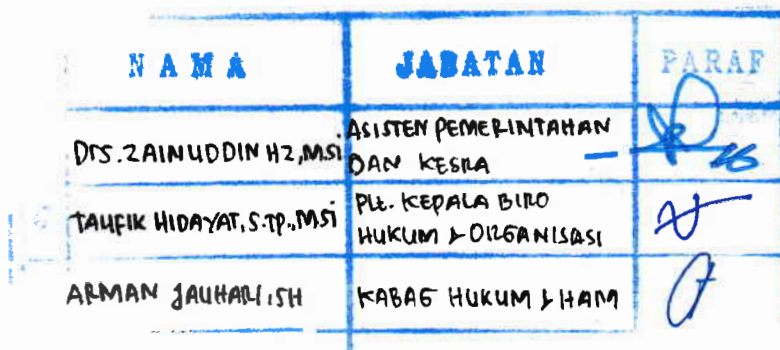 NAMA JABATAN PARAF
Drs. ZAINUDDIN HZ, MSi ASISTEN PEMERINTAHAN
DAN KESRA
TAUFIK HIDAYAT, S.TP., MSi Plt. KEPALA BIRO
HUKUM & ORGANISASI
ARMAN JAUHARI, SH KABAG HUKUM & HAM